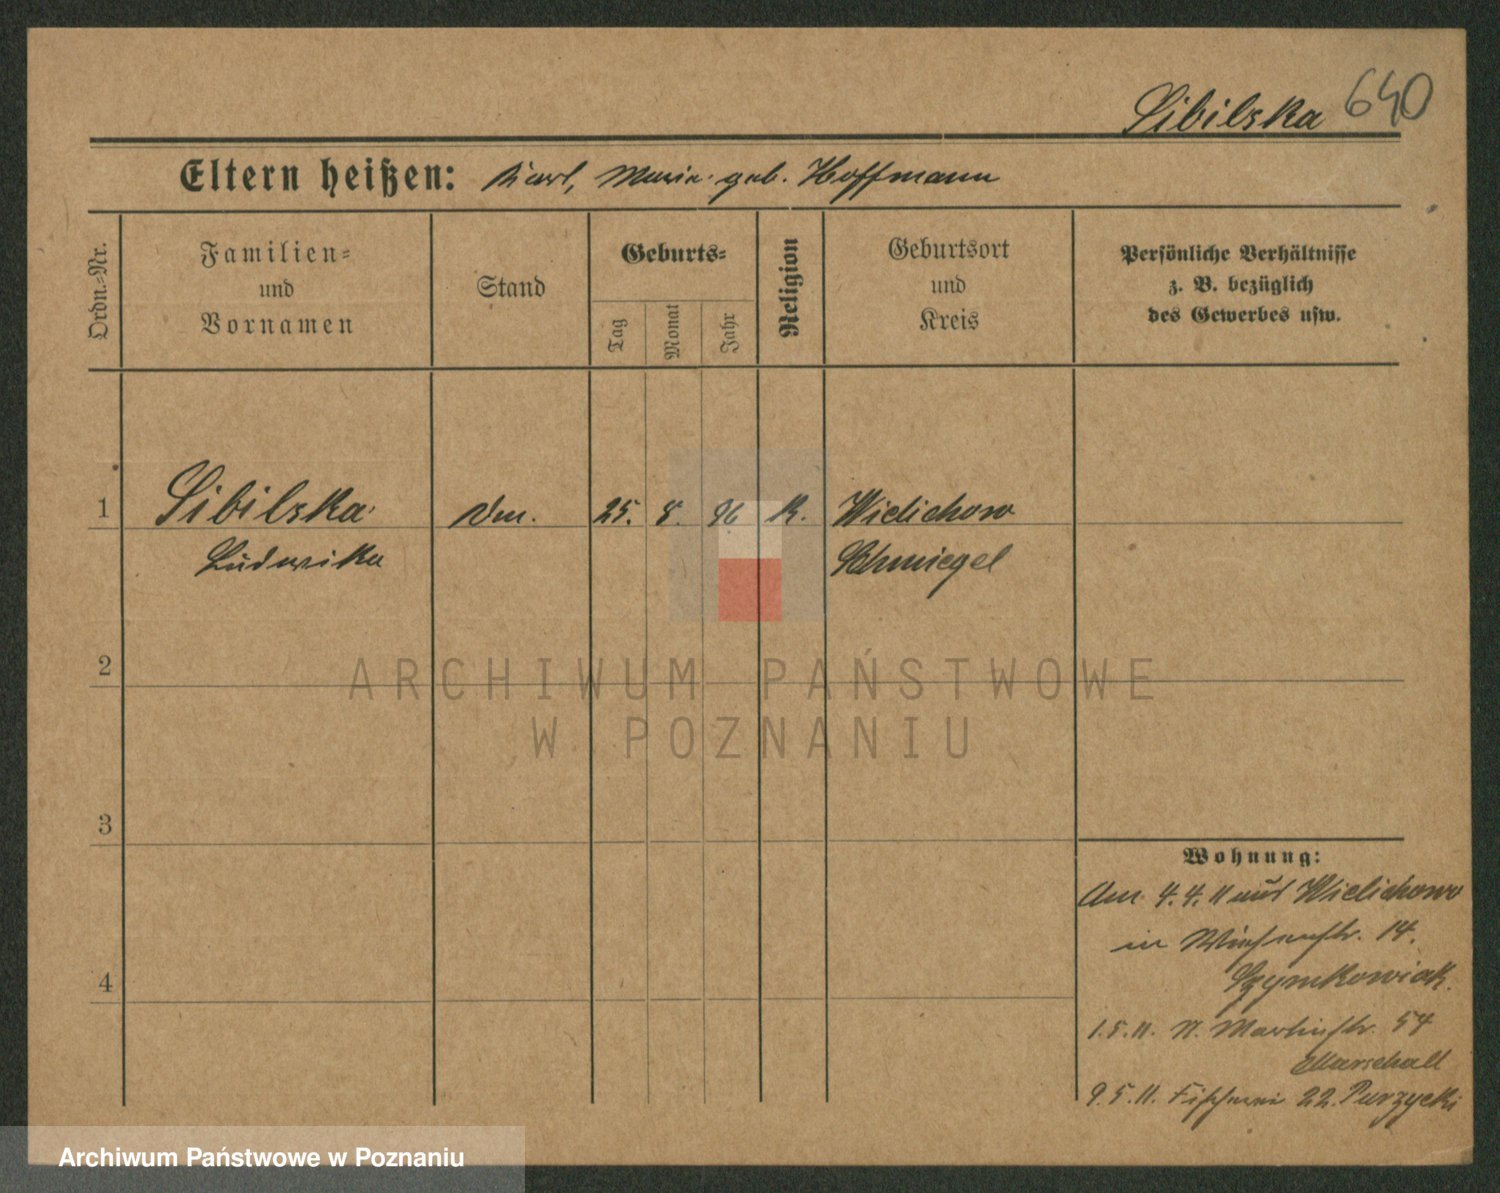 Sibilska 640
Eltern heißen: Karl, Maria geb. Hoffmann
Ordn.-Nr.
Familien-
und
Vornamen
Stand
Geburts-
Tag
Monat
Jahr
Religion
Geburtsort
und
Kreis
Persönliche Verhältnisse
z. B. bezüglich
des Gewerbes usw.
1 Sibilska 25. 8. 96 K. Wielichowo
Ludwika Schmiegel
2
3
4
Wohnung:
Am 4.4.11 aus Wielichowo
in 14.
Szymkowiak.
1.5.11. N. Martinstr. 54
Marschall
9.5.11. Fischerei 22. Purzycki
ARCHIWUM PAŃSTWOWE
W POZNANIU
Archiwum Państwowe w Poznaniu